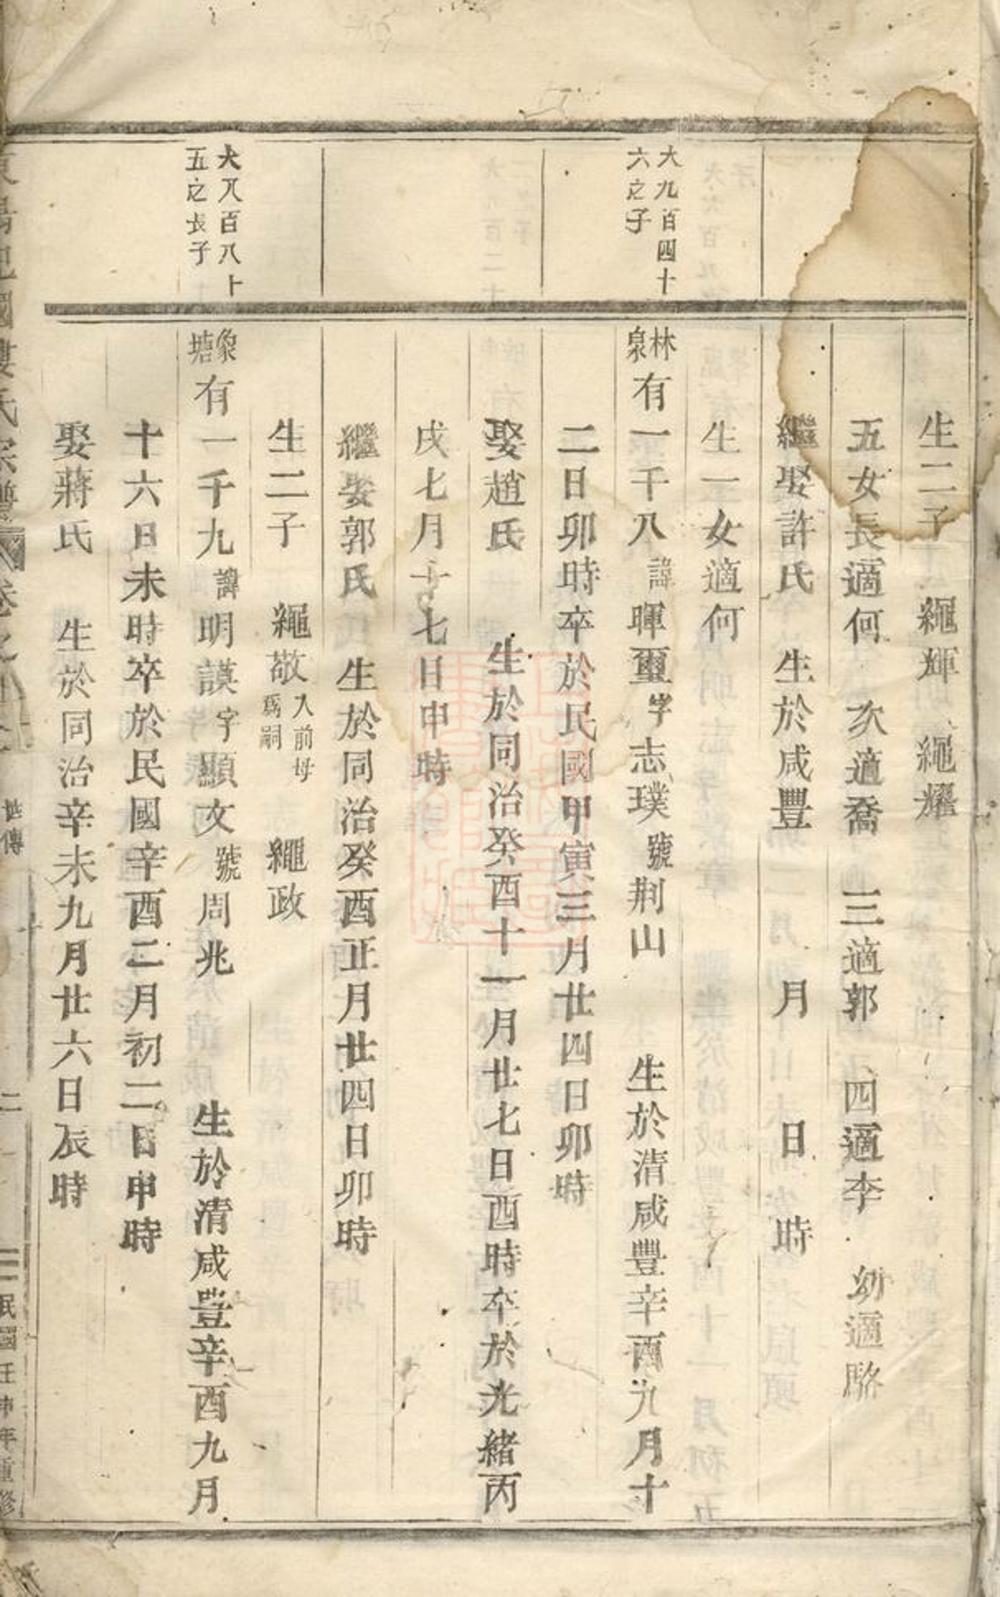 生二子 繩輝 繩耀
五女長適何 次適喬 三適郭 四適李 幼適駱
繼娶許氏 生於咸豐 月 日 時
生一女適何
大九百四十
六之子
林泉
有一千八諱暉璽字志璞號荆山 生於清咸豐辛酉九月十
二日卯時卒於民國甲寅三月廿四日卯時
娶趙氏 生於同治癸酉十一月廿七日酉時卒於光緒丙
戌七月十七日申時
繼娶郭氏 生於同治癸酉正月廿四日卯時
生二子 繩敬入前母爲嗣 繩政
大八百八十
五之長子
象塘
有一千九諱明謨字顯文號周兆 生於清咸豐辛酉九月
十六日未時卒於民國辛酉二月初二日申時
娶蔣氏 生於同治辛未九月廿六日辰時
世傳
二
民國壬申年重修